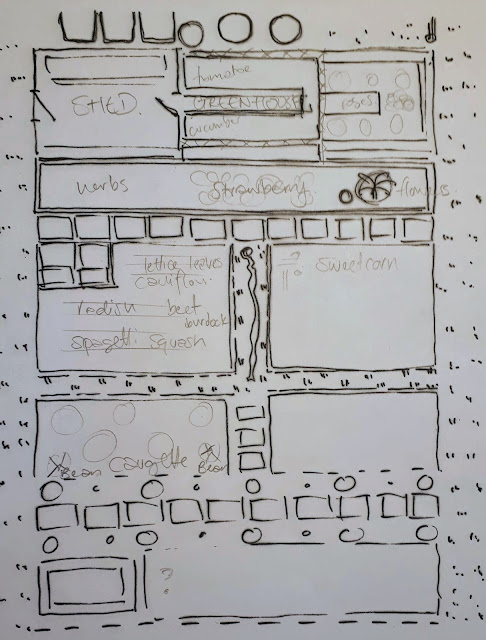 tomatoe
SHED.
GREENHOUSE
roses
cucumber
herbs
Strawberry
flowers
lettice leaves
cauliflow.
? sweetcorn
radish beet
burdock
spagetti squash
Bean courgette Bean
?